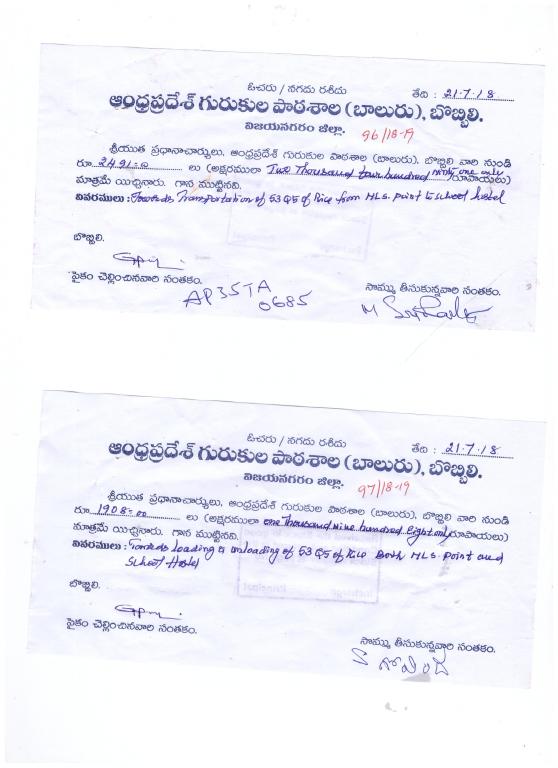 ఓచరు / నగదు రశీదు
తేది : 21.7.18
ఆంధ్రప్రదేశ్ గురుకుల పాఠశాల (బాలురు), బొబ్బిలి.
విజయనగరం జిల్లా.
96/18-19
శ్రీయుత ప్రధానాచార్యులు, ఆంధ్రప్రదేశ్ గురుకుల పాఠశాల (బాలురు), బొబ్బిలి వారి నుండి
రూ 2491=00 లు (అక్షరములా Two Thousand four hundred ninty one only రూపాయలు)
మాత్రమే యిచ్చినారు. గాన ముట్టినవి.
వివరములు : Towards Transportation of 53 QS of Rice from MLS. point to school hostel
బొబ్బిలి.
పైకం చెల్లించినవారి సంతకం.
సొమ్ము తీసుకున్నవారి సంతకం.
AP35TA
0685
ఓచరు / నగదు రశీదు
తేది : 21.7.18
ఆంధ్రప్రదేశ్ గురుకుల పాఠశాల (బాలురు), బొబ్బిలి.
విజయనగరం జిల్లా.
97/18-19
శ్రీయుత ప్రధానాచార్యులు, ఆంధ్రప్రదేశ్ గురుకుల పాఠశాల (బాలురు), బొబ్బిలి వారి నుండి
రూ 1908=00 లు (అక్షరములా one Thousand nine hundred Eight only రూపాయలు)
మాత్రమే యిచ్చినారు. గాన ముట్టినవి.
వివరములు : Towards loading & unloading of 53 QS of Rice Both MLS. Point and
School Hostel
బొబ్బిలి.
పైకం చెల్లించినవారి సంతకం.
సొమ్ము తీసుకున్నవారి సంతకం.
S గోవింద